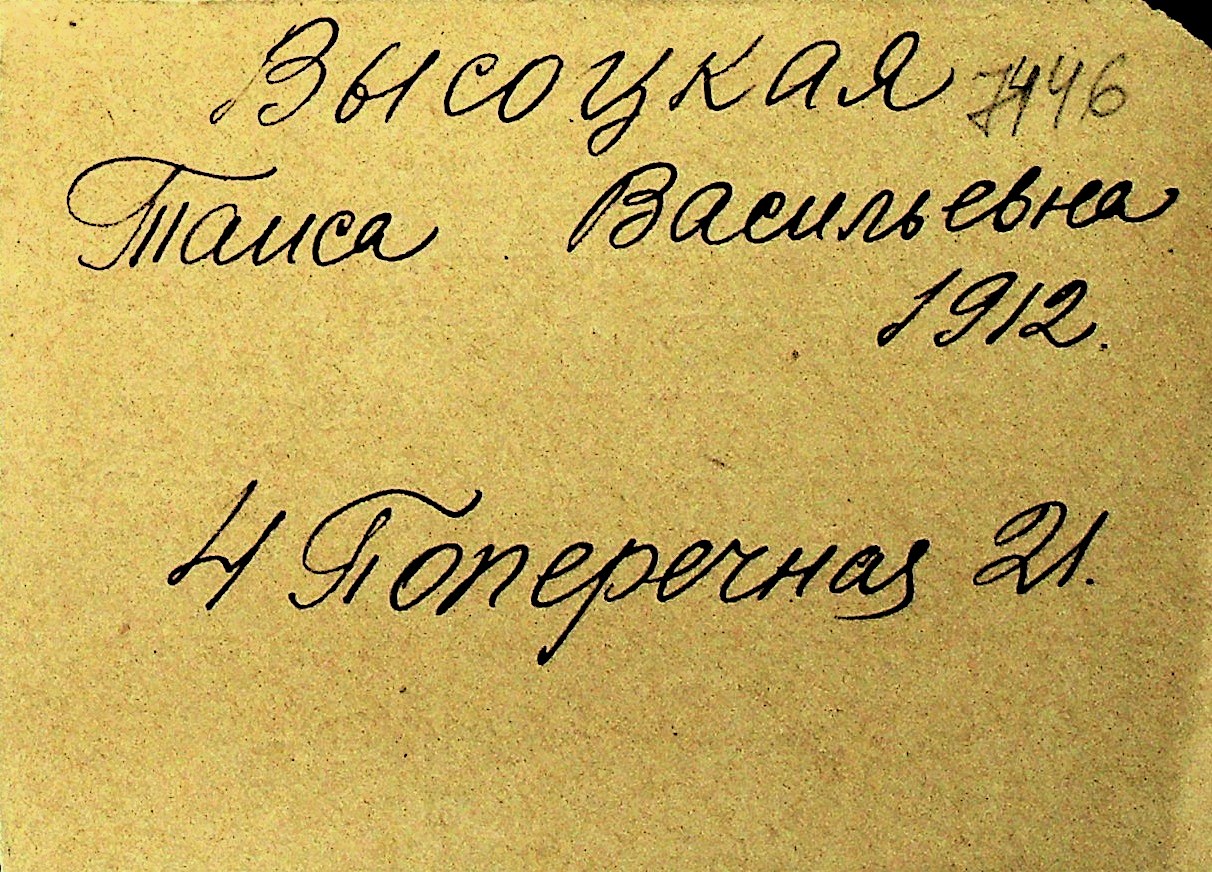 Высоцкая 7446
Таиса Васильевна
1912.
4 Поперечная 21.